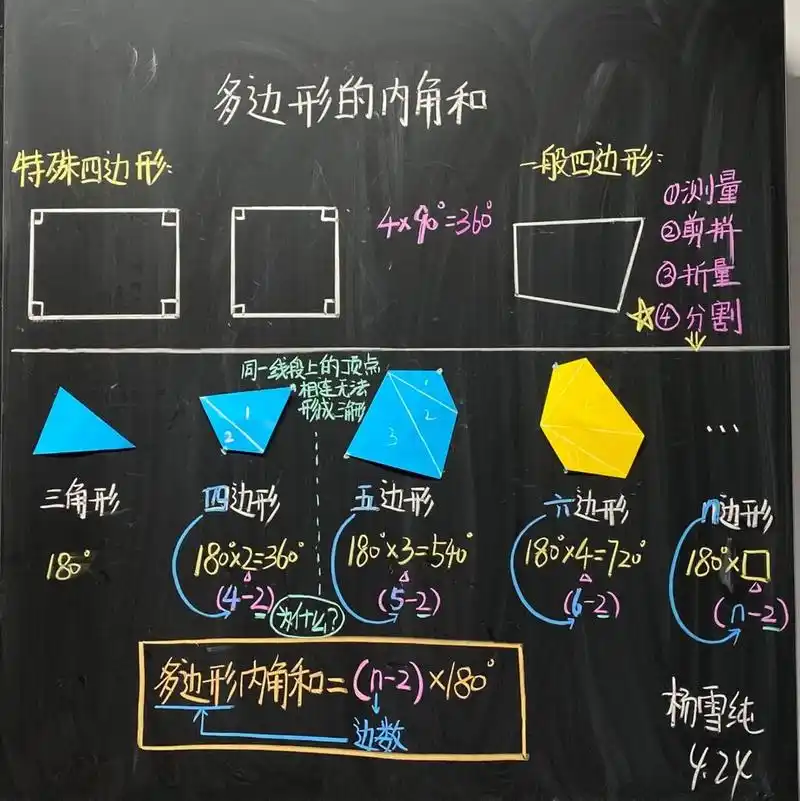 多边形的内角和
特殊四边形:
4×90°=360°
一般四边形:
①测量
②剪拼
③折量
☆④分割
同一线段上的顶点
相连无法
形成三角形
1
2
1
2
3
...
三角形
四边形
五边形
六边形
n边形
180°
180°×2=360°
180°×3=540°
180°×4=720°
180°×□
(4-2)
为什么?
(5-2)
(6-2)
(n-2)
多边形内角和=(n-2)×180°
边数
杨雪纯
4.24